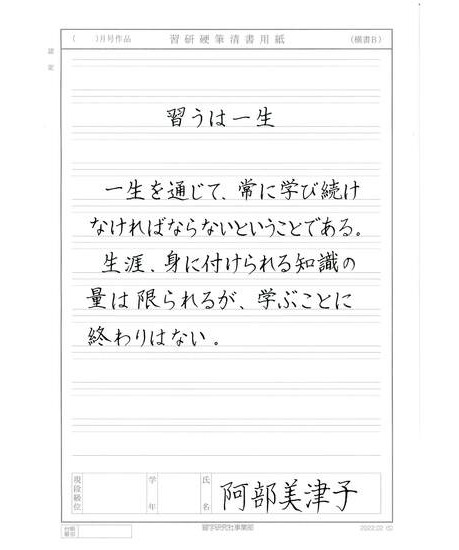 (　　)月号作品　習研硬筆清書用紙　(横書B)
習うは一生
一生を通じて、常に学び続け
なければならないということである。
生涯、身に付けられる知識の
量は限られるが、学ぶことに
終わりはない。
現段級位　学年　氏名　阿部美津子
習字研究社事業部